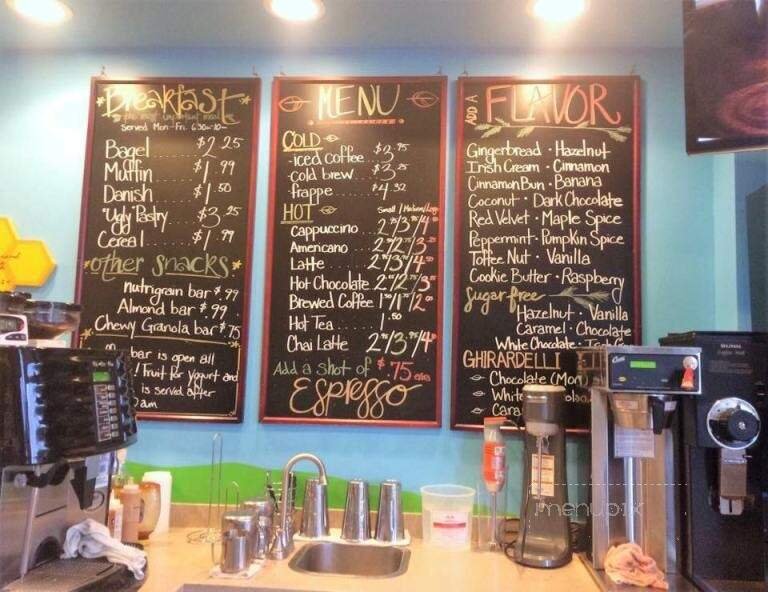 Breakfast
the most important meal
served Mon-Fri. 6:30-10-
Bagel $2.25
Muffin $1.99
Danish $1.50
"Ugly" Pastry $3.25
Cereal $1.99
other snacks
nutrigrain bar $.99
Almond bar $.99
Chewy Granola bar $.75
bar is open all
! Fruit for yogurt and
is served after
am
MENU
COLD
iced coffee $3.75
cold brew $3.25
frappe $4.32
HOT
Small / Medium / Large
Cappuccino
Americano
Latte
Hot Chocolate
Brewed Coffee
Hot Tea 1.50
Chai Latte
Add a shot of $.75
Espresso
ADD A FLAVOR
Gingerbread · Hazelnut
Irish Cream · Cinnamon
Cinnamon Bun · Banana
Coconut · Dark Chocolate
Red Velvet · Maple Spice
Peppermint · Pumpkin Spice
Toffee Nut · Vanilla
Cookie Butter · Raspberry
sugar free
Hazelnut · Vanilla
Caramel · Chocolate
White Chocolate ·
GHIRARDELLI
Chocolate
White
Cara
BUNN
menupix